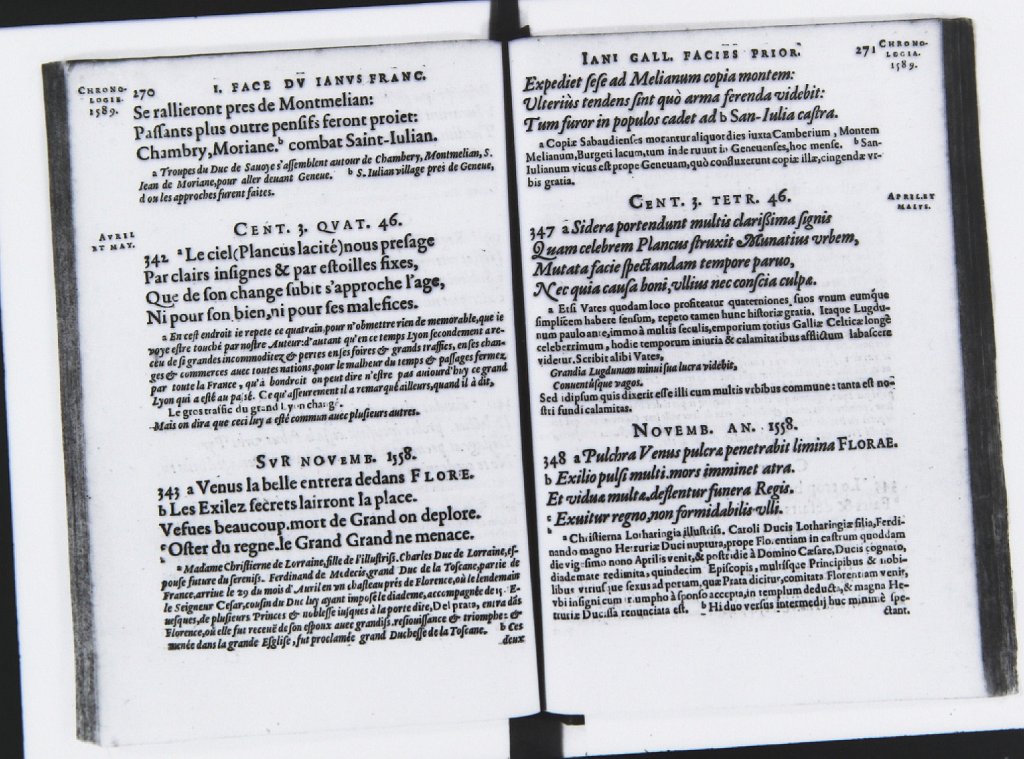 CHRONO-
LOGIE.
1589.
270 I. FACE DV IANVS FRANC.
Se rallieront pres de Montmelian:
Paſſants plus outre penſifs feront proiet:
Chambry, Moriane. b combat Saint-Iulian.
a Troupes du Duc de Sauoye s'aſſemblent autour de Chambery, Montmelian, S.
Iean de Moriane, pour aller deuant Geneue. b S. Iulian village pres de Geneue,
d ou les approches furent faites.
AVRIL
ET MAY.
CENT. 3. QVAT. 46.
342 a Le ciel (Plancus la cité) nous preſage
Par clairs inſignes & par eſtoilles fixes,
Que de ſon change ſubit s'approche l'age,
Ni pour ſon bien, ni pour ſes malefices.
a En ceſt endroit ie repete ce quatrain pour n'obmettre rien de memorable, que ie
voye eſtre touché par noſtre Auteur: d'autant qu'en ce temps Lyon ſecondement a re-
ceu de ſi grandes incommoditez & pertes en ſes foires & grands traffics, en ſes chan-
ges & commerces auec toutes nations, pour le malheur du temps & paſſages fermez
par toute la France, qu'à bon droit on peut dire n'eſtre pas auiourd'huy ce grand
Lyon qui a eſté au paſſé. Ce qu'aſſeurement il a remarqué ailleurs, quand il à dit,
Le gres traffic du grand Lyon changé.
Mais on dira que ceci luy a eſté commun auec pluſieurs autres.
SVR NOVEMB. 1558.
343 a Venus la belle entrera dedans FLORE.
b Les Exilez ſecrets lairront la place.
Vefues beaucoup. mort de Grand on deplore.
c Oſter du regne. le Grand Grand ne menace.
a Madame Chriſtierne de Lorraine, fille de l'Illuſtriſſ. Charles Duc de Lorraine, eſ-
pouſe future du ſereniſſ. Ferdinand de Medecis, grand Duc de la Toſcane, partie de
France, arriue le 29 du mois d'Auril en vn chaſteau prés de Florence, où le lendemain
le Seigneur Ceſar, couſin du Duc luy ayant impoſé le diademe, accompagnée de 15. E-
ueſques, de pluſieurs Princes & nobleſſe iuſques à la porte dite, Del prato, entra dás
Florence, où elle fut receuë de ſon eſpoux auec grandiſſ. reſiouiſſance & triomphe: &
menée dans la grande Egliſe, fut proclamée grand Ducheſſe de la Toſcane. b Ces
deux
IANI GALL. FACIES PRIOR. 271
CHRONO-
LOGIA.
1589.
Expediet ſeſe ad Melianum copia montem:
Vlteriùs tendens ſint quò arma ferenda videbit:
Tum furor in populos cadet ad b San-Iulia caſtra.
a Copiæ Sabaudienſes morantur aliquot dies iuxta Camberium, Montem
Melianum, Burgeti lacum, tum inde ruunt in Geneuenſes, hoc menſe. b San-
Iulianum vicus eſt prope Geneuam, quò confluxerunt copiæ illæ, cingendæ vr-
bis gratia.
APRIL. ET
MAIVS.
CENT. 3. TETR. 46.
347 a Sidera portendunt multis clariſſima ſignis
Quam celebrem Plancus ſtruxit Munatius vrbem,
Mutata facie ſpectandam tempore paruo,
Nec quia cauſa boni, vllius nec conſcia culpæ.
a Etſi Vates quodam loco profiteatur quaterniones ſuos vnum eumque
ſimplicem habere ſenſum, repeto tamen hunc hiſtoriæ gratia. Itaque Lugdu-
num paulo ante, immo à multis ſeculis, emporium totius Galliæ Celticæ longè
celeberrimum, hodie temporum iniuria & calamitatibus afflictum labaſcere
videtur. Scribit alibi Vates,
Grandia Lugdunum minui ſua lucra videbit,
Conuentúſque vagos.
Sed idipſum quis dixerit eſſe illi cum multis vrbibus commune: tanta eſt no-
ſtri ſundi calamitas.
NOVEMB. AN. 1558.
348 a Pulchra Venus pulcra penetrabit limina FLORAE.
b Exilio pulſi multi. mors imminet atra.
Et vidua multa. deflentur funera Regis.
c Exuitur regno, non formidabilis vlli.
a Chriſtierna Lotharingia illuſtriſſ. Caroli Ducis Lotharingiæ filia, Ferdi-
nando magno Hetruriæ Duci nuptura, prope Florentiam in caſtrum quoddam
die vigeſimo nono Aprilis venit, & poſtridie à Domino Cæſare, Ducis cognato,
diademate redimita, quindecim Epiſcopis, multiſque Principibus & nobi-
libus vtriuſque ſexus ad portam, quæ Prata dicitur, comitata Florentiam venit,
vbi inſigni cum triumpho à ſponſo accepta, in templum deducta, & magna He-
truriæ Duciſſa renunciata eſt. b Hi duo verſus intermedij huc minimè ſpe-
ctant.